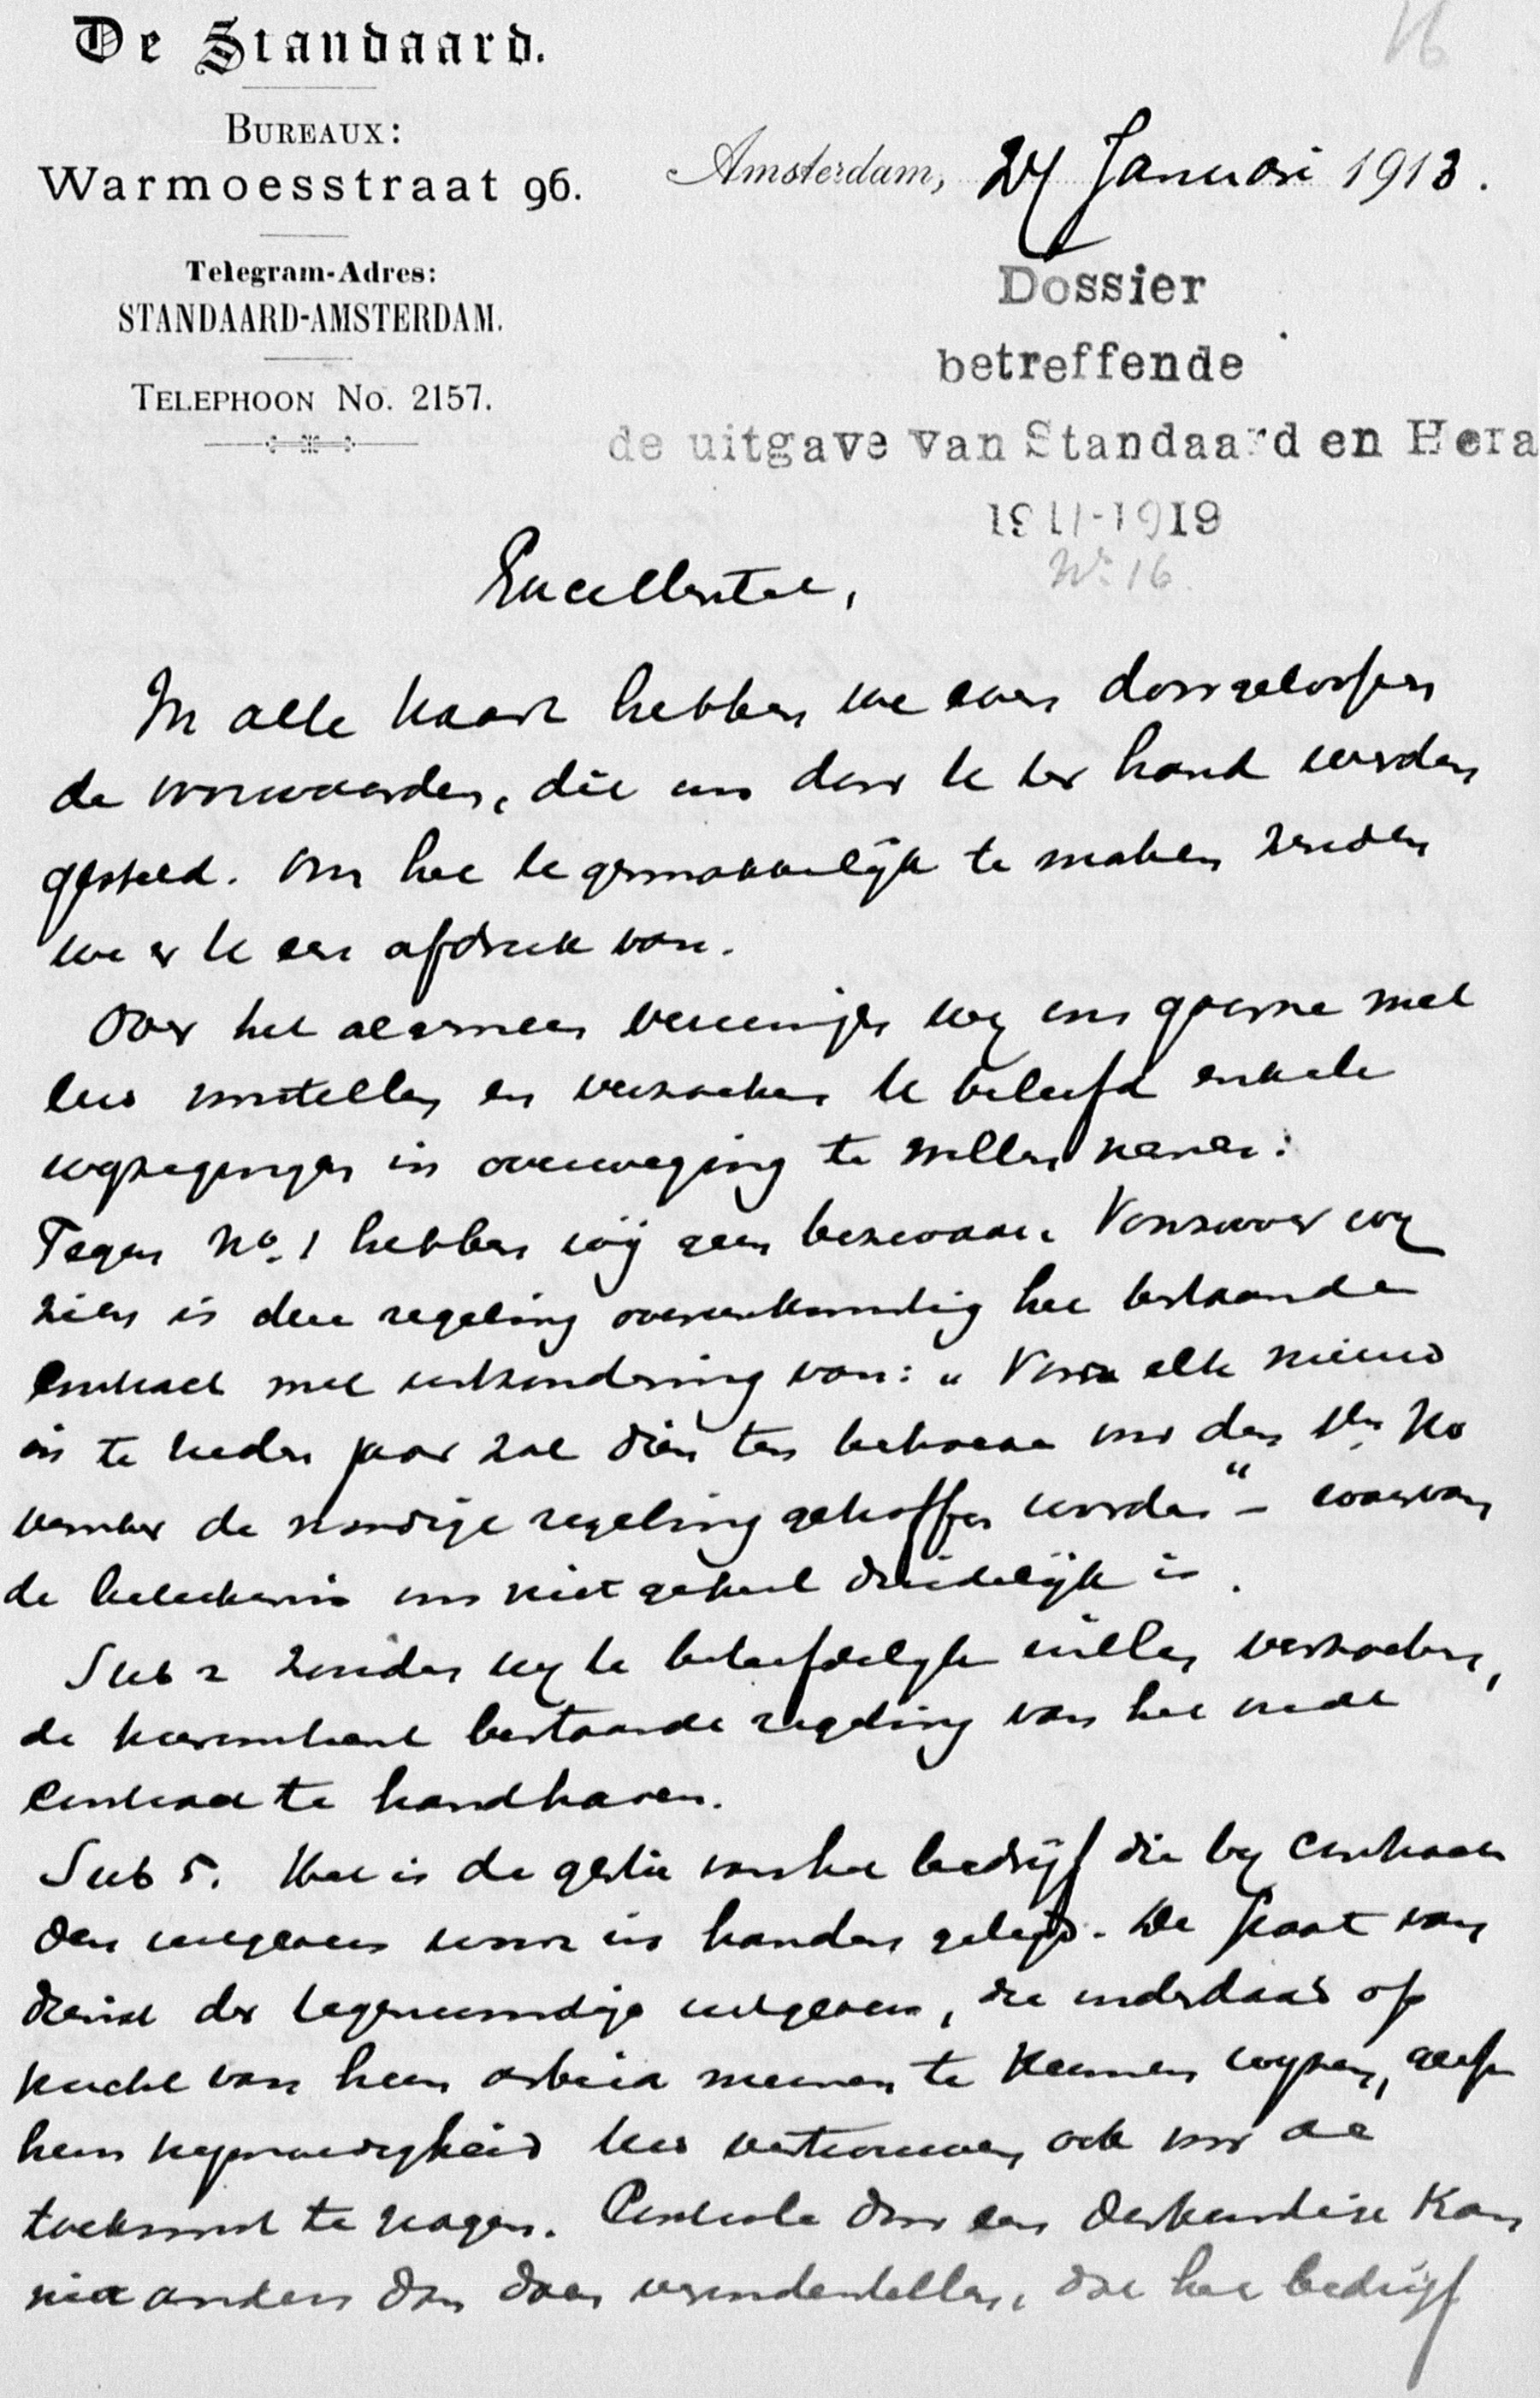 De Standaard.
BUREAUX:
Warmoesstraat 96.
Telegram-Adres:
STANDAARD-AMSTERDAM.
TELEPHOON No. 2157.
16
Amsterdam, 24 Januari 1913.
Dossier
betreffende
de uitgave van Standaard en Hera
1911-1919
No 16
Excellentie,
In alle haast hebben we even doorgeloopen
de voorwaarden, die ons door U ter hand werden
gesteld. Om het U gemakkelijk te maken zenden
we er U een afdruk van.
Over het algemeen vereenigen wij ons gaarne met
Uw voorstellen en verzoeken U beleefd enkele
wijzigingen in overweging te willen nemen:
Tegen No. 1 hebben wij geen bezwaar. Voorzoover wij
zien is deze regeling overeenkomstig het bestaande
Contract met uitzondering van: „Voor elk nieuw
in te treden jaar zal dien ten behoeve voor den 1en No
vember de noodige regeling getroffen worden" – waarvan
de beteekenis ons niet geheel duidelijk is.
Sub 2 zouden wij U beleefdelijk willen verzoeken,
de bestaande regeling van het oude
Contract te handhaven.
Sub 5. Het is de gestie van het bedrijf die bij Contract
den uitgevers wordt in handen gelegd. De staat van
dienst der tegenwoordige uitgevers, die inderdaad op
succes van hun arbeid meenen te kunnen wijzen, geeft
hun vrijmoedigheid Uw vertrouwen ook voor de
toekomst te vragen. Controle door een deskundige kan
niet anders dan doen veronderstellen, dat het bedrijf